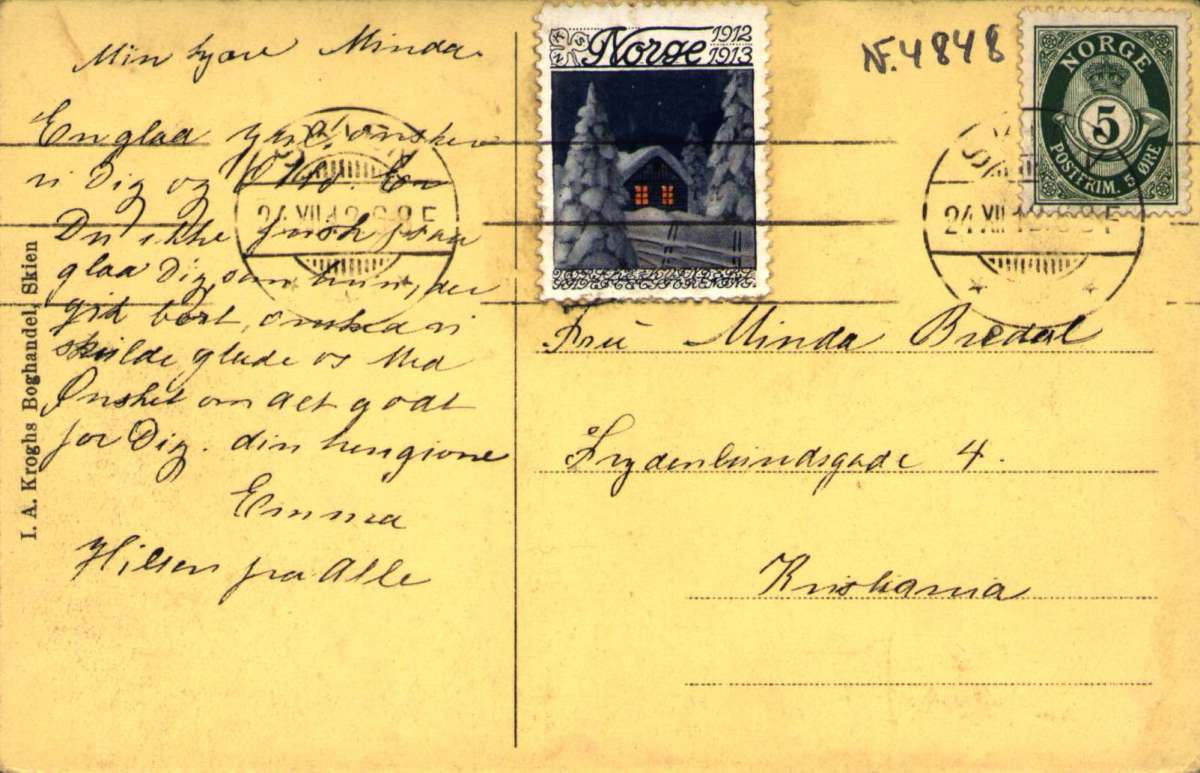 Min kjære Minda.
En glad Jul! ønsker
vi Dig og Otto.
Du ikke
glaa Dig, som hun, der
gik bort, ønsked vi
skulde glæde os Med
Ønsket om alt godt
for Dig. din hengivne
Emma
Hilsen fra Alle
I. A. Kroghs Boghandel, Skien
Norge 1912
1913
N.4848
NORGE
5
POSTFRIM. 5 ØRE
24.VII.12
24.VII.12
Fru Minda Bredal
Frydenlundsgade 4.
Kristiania